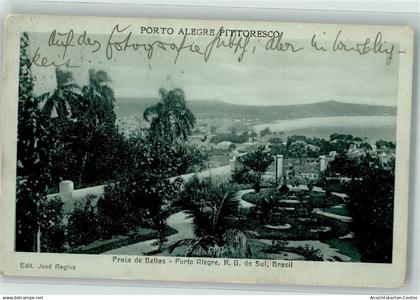 PORTO ALEGRE PITTORESCO
auf der Fotografie hübsch, aber in Wirklich-
keit
Praia de Bellas - Porto Alegre, R. G. do Sul, Brasil
Edit. José Regina
www.ansichtskartenversand.com